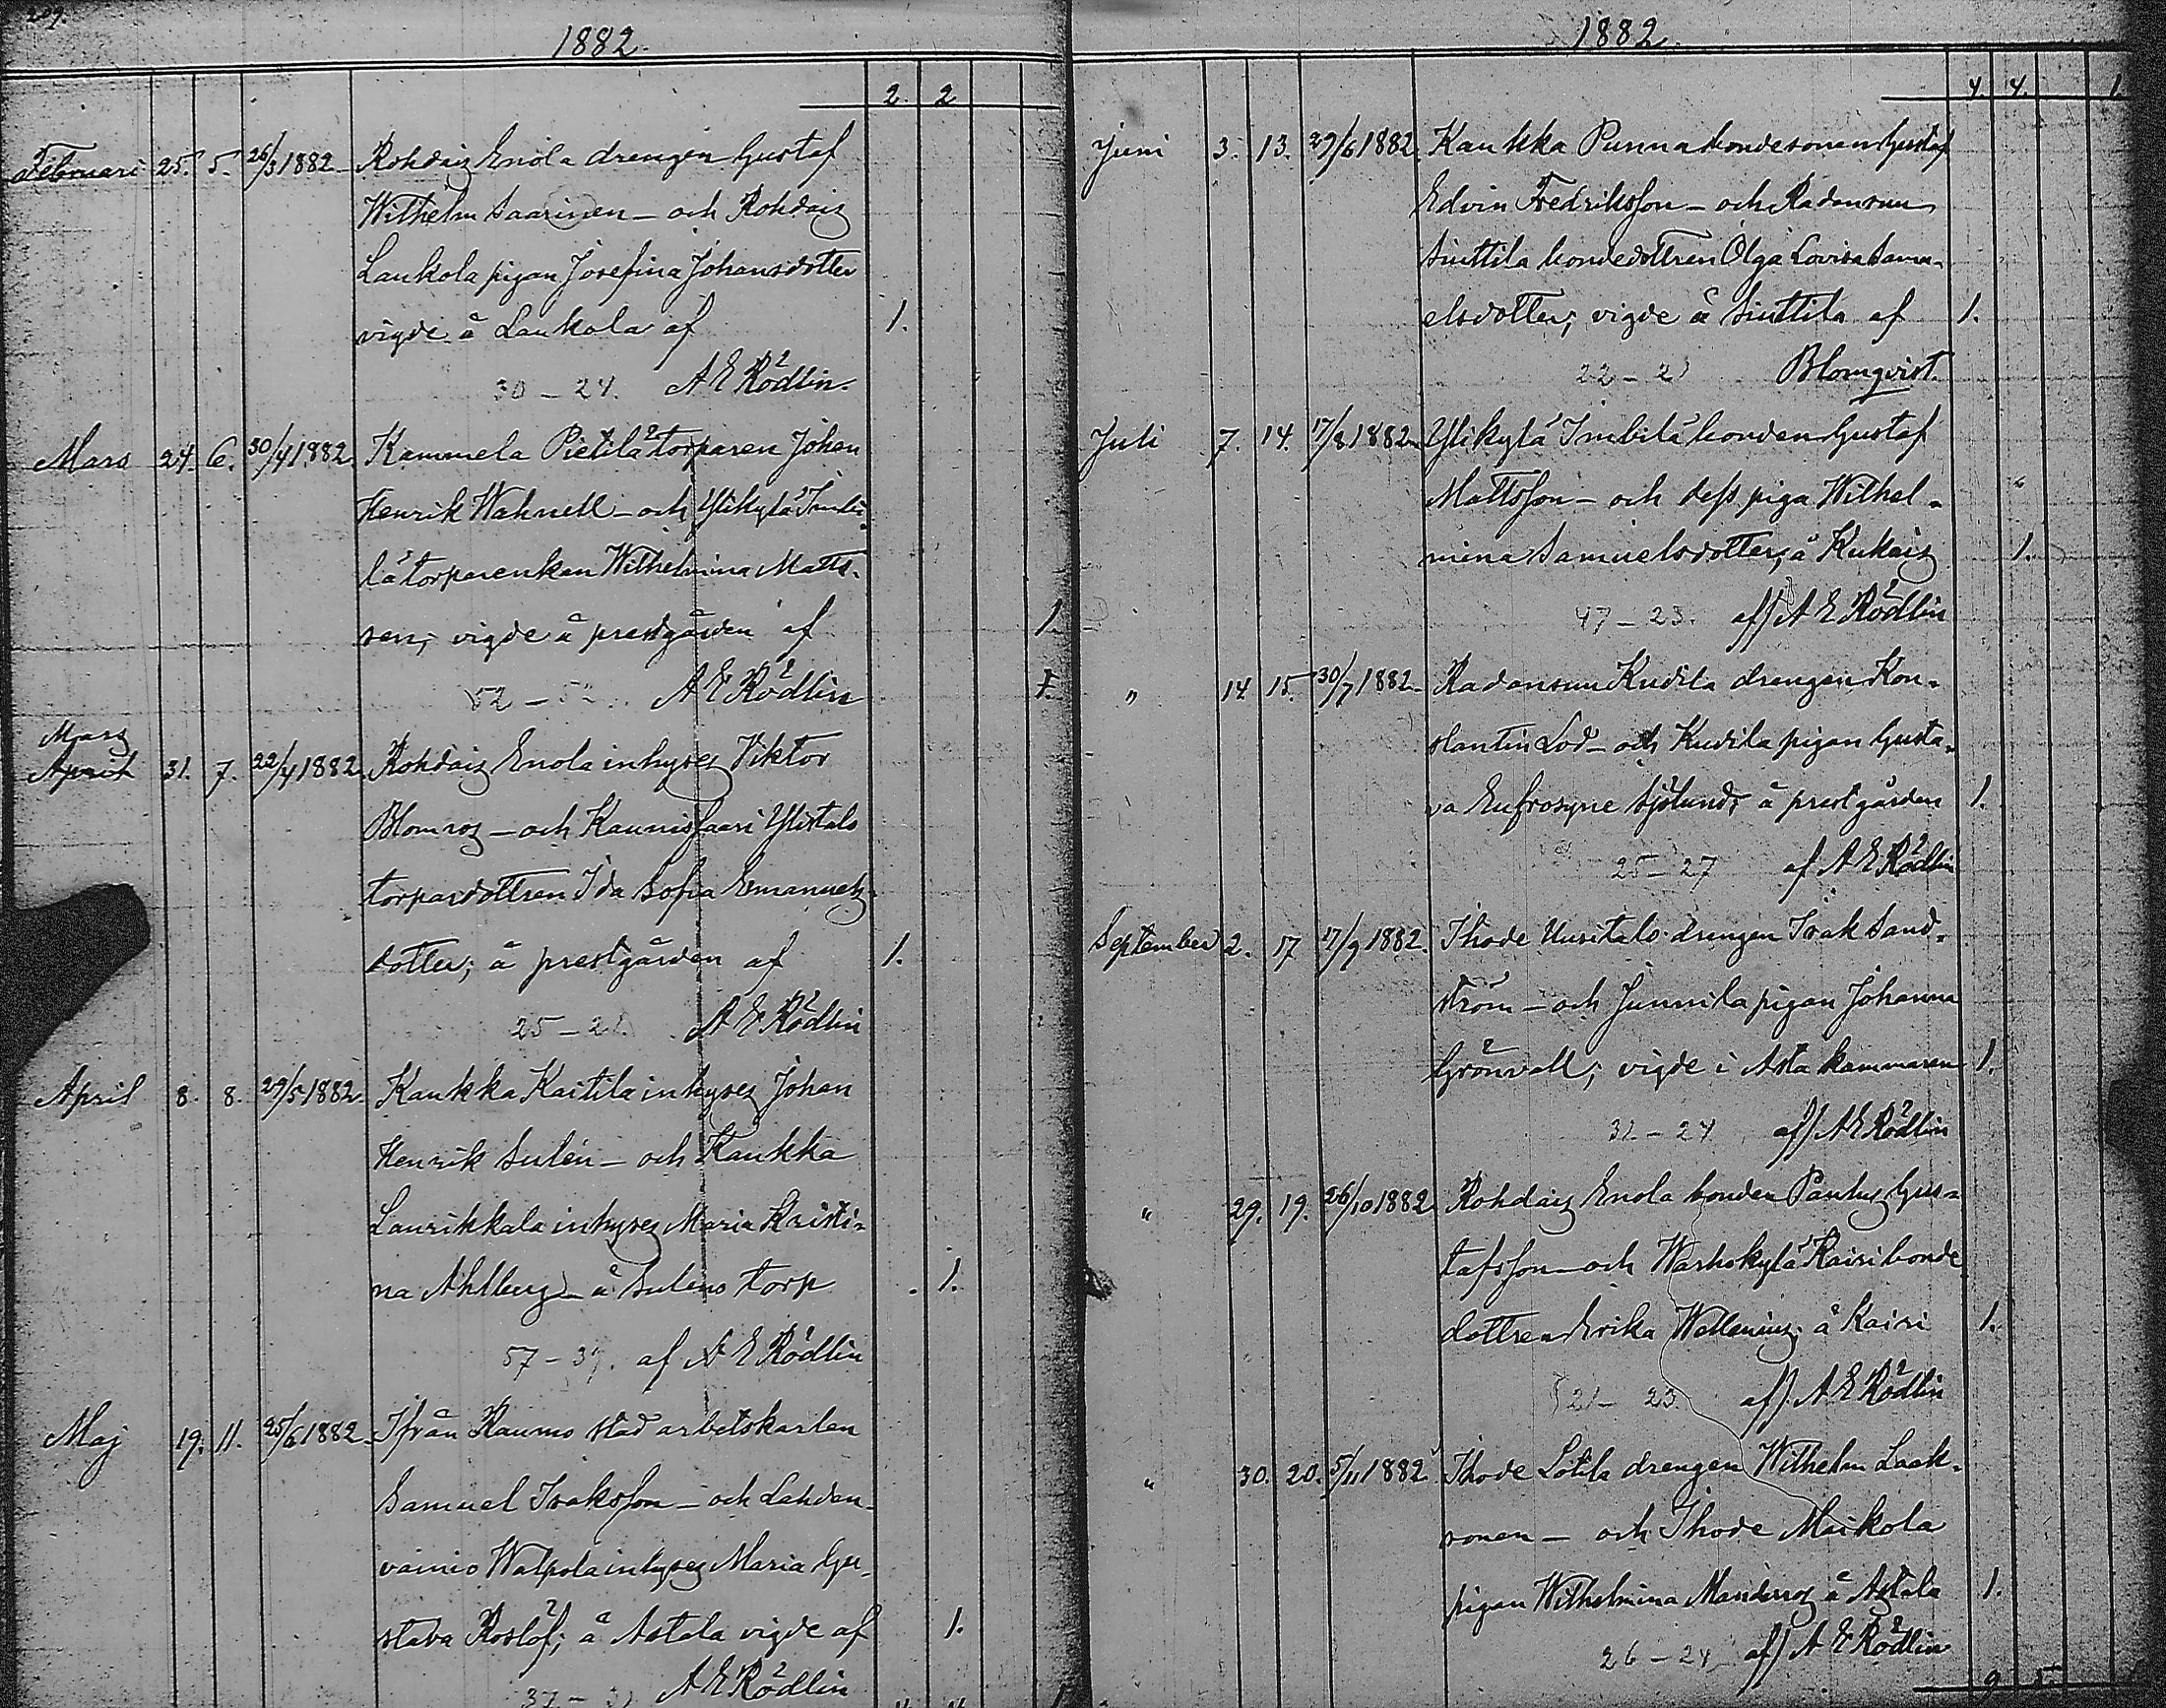 209.
1882.
2. 2
Februari 25. 5. 26/3 1882. Rohdaiz Enola drengen Gustaf
Wilhelm Saarinen – och Rohdaiz
Laukola pigan Josefina Johansdotter
vigde å Laukola af 1.
30 – 24. A E Rödlin.
Mars 24. 6. 30/4 1882. Kammela Pietilä torparen Johan
Henrik Wahnell – och Ylikylä Imbi-
lä torparenkan Wilhelmina Matts-
son; vigde å prestgården af 1
52 – A E Rödlin 1.
Mars
April 31. 7. 22/4 1882. Rohdaiz Enola inhyses Viktor
Blomros – och Kaunissaari Ylistalo
torpardottren Ida Sofia Emanuels-
dotter; å prestgården af 1.
25 – A E Rödlin
April 8. 8. 29/5 1882. Kaukka Kaitila inhyses Johan
Henrik Sulén – och Kaukka
Laurikkala inhyses Maria Kristi-
na Ahlberg – å Sulens torp 1.
57 – 39. af A E Rödlin
Maj 19. 11. 25/6 1882. Ifrån Raumo stad arbetskarlen
Samuel Isaksson – och Lahden-
vainio Walpola inhyses Maria Gu-
stava Roslöf; å Astala vigde af 1.
A E Rödlin
1882.
4. 4. 1.
Juni 3. 13. 29/6 1882. Kaukka Punna bondesonen Gustaf
Edvin Fredriksson – och Radansuu
Siuttila bondedottren Olga Lovisa Samu-
elsdotter; vigde å Siuttila af 1.
22 – 21 Blomqvist.
Juli 7. 14. 17/8 1882. Ylikylä Imbilä bonden Gustaf
Mattsson – och dess piga Wilhel-
mina Samuelsdotter; å Kukaiz 1.
47 – 23. af) A E Rödlin
" 14 15. 30/7 1882. Radansuu Kudila drengen Kon-
stantin Lod – och Kudila pigan Gusta-
va Eufrosyne Sjölund; å prestgården 1.
25 – 27 af A E Rödlin
September 2. 17 17/9 1882. Ihode Uusitalo drengen Isak Sand-
ström – och Junnila pigan Johanna
Grönvall; vigde i Asta kammaren 1.
31 – 24 af) A E Rödlin
" 29. 19. 26/10 1882 Rohdaiz Enola bonden Paulus Gus-
tafsson – och Warhokylä Kairi bonde
dottren Erika Wallenius; å Kairi 1.
21 – 23 af). A E Rödlin
" 30. 20. 5/11 1882 Ihode Lotila drengen Wilhelm Laak-
sonen – och Ihode Maikola
pigan Wilhelmina Manderos å Astala 1.
26 – 24 af) A E Rödlin
9 5.